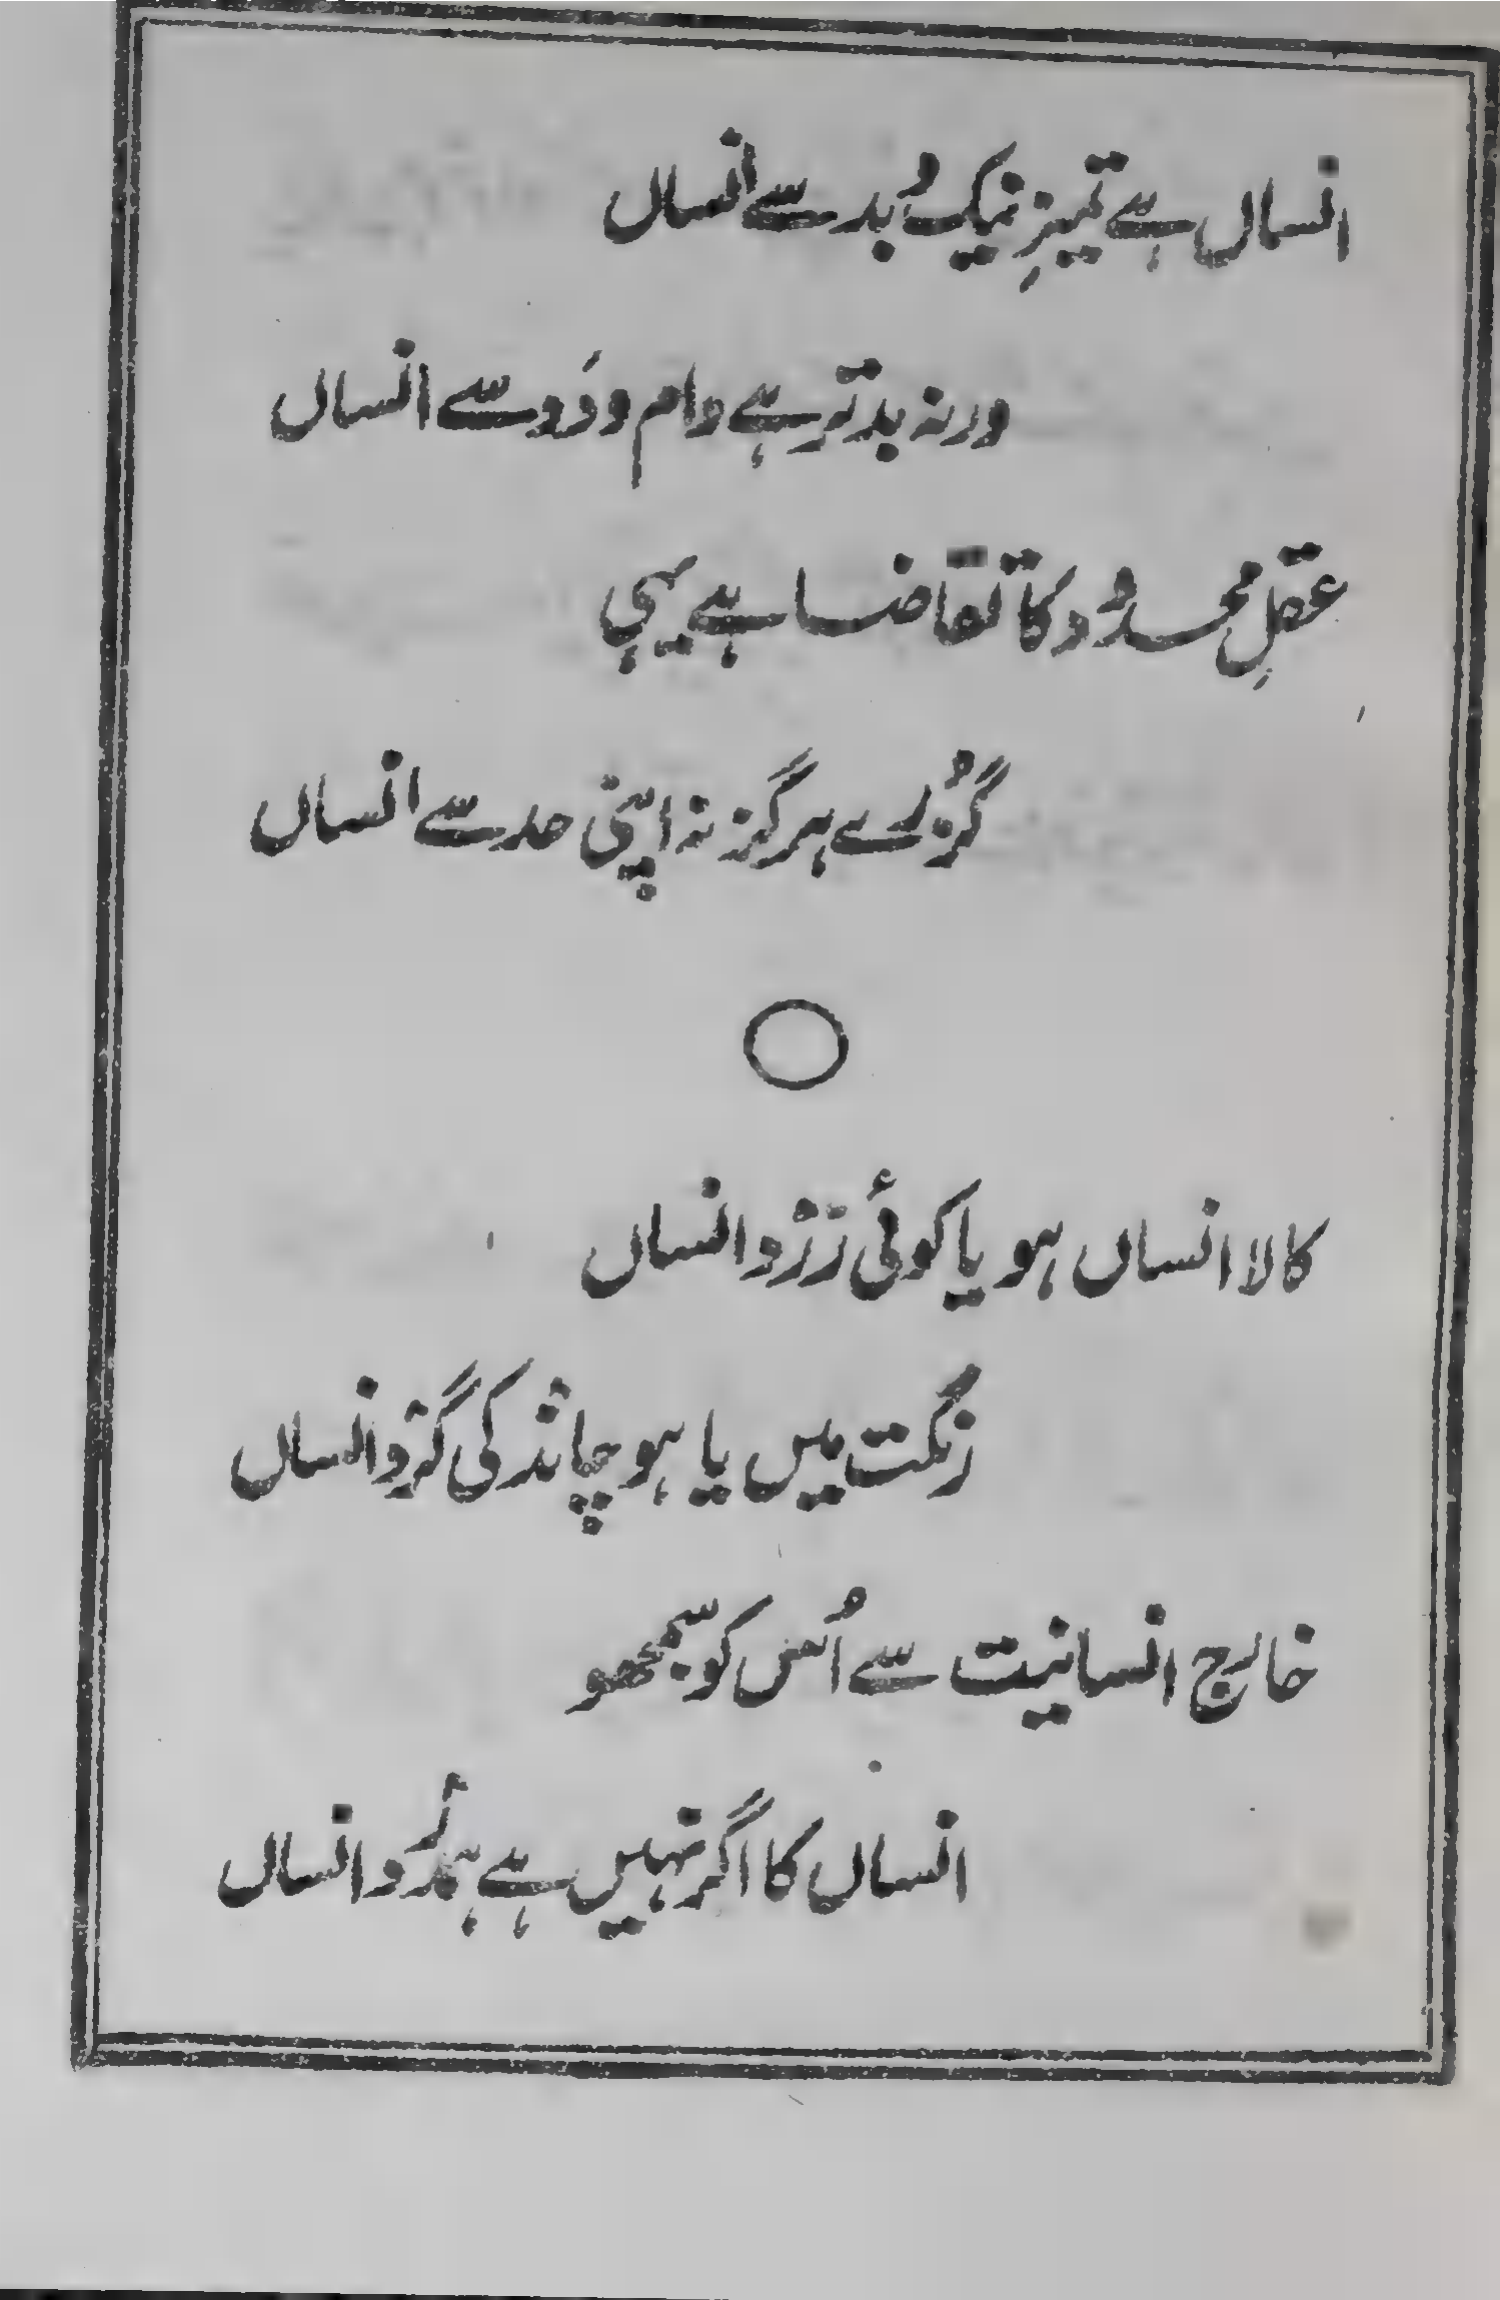 انساں ہے تمیزِ نیک و بد سے انساں
ورنہ بدتر ہے دام و دَد سے انساں
عقلِ محدود کا تقاضا ہے یہی
گزرے ہرگز نہ اپنی حد سے انساں
کالا انساں ہو یا کوئی زرد انساں
رنگت میں یا ہو چاند کی گرد انساں
خارج انسانیت سے اُس کو سمجھو
انساں کا اگر نہیں ہے ہمدرد انساں